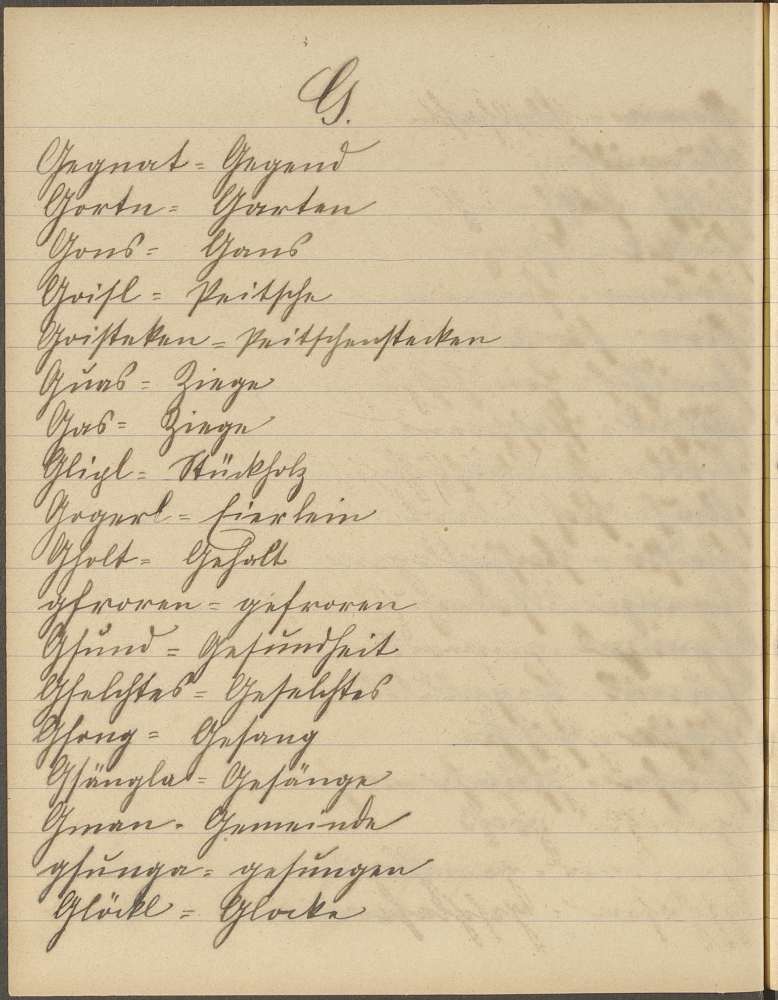 G.
Gegnat = Gegend
Gortn = Garten
Gons = Gans
Goisl = Peitsche
Goisteken = Peitschenstecken
Guas = Ziege
Gas = Ziege
Gligl = Stückholz
Gogerl = Eierlein
Gholt = Gehalt
gfroren = gefroren
Gsund = Gesundheit
Gselchtes = Geselchtes
Gsong = Gesang
Gsängla = Gesänge
Gman = Gemeinde
gsunga = gesungen
Glöckl = Glocke